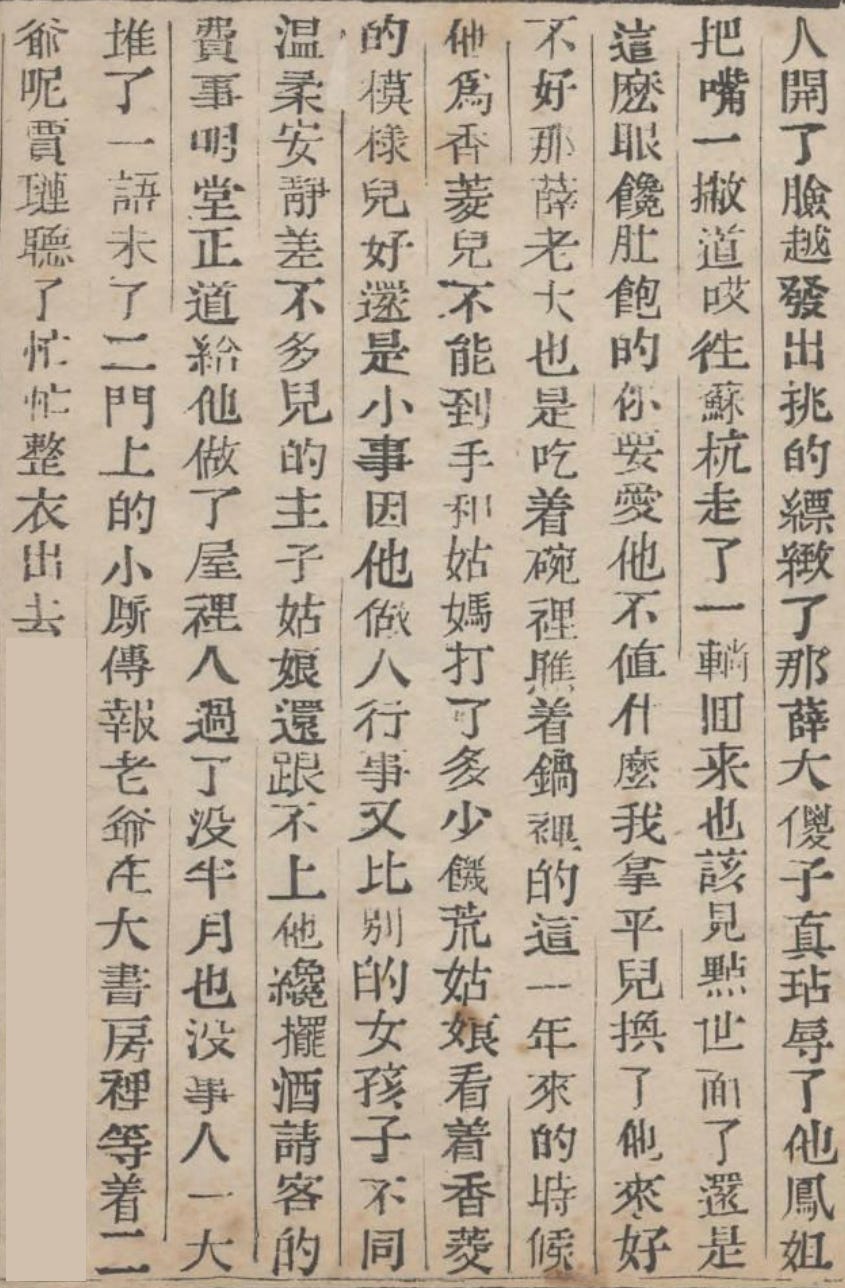 人開了臉越發出挑的縹緻了那薛大傻子真玷辱了他鳳姐
把嘴一撇道哎徃蘇杭走了一輛囬来也該見點世面了還是
這麽眼饞肚飽的你要愛他不值什麽我拿平兒換了他來好
不好那薛老大也是吃着碗裡瞧着鍋裡的這一年來的時候
他爲香菱兒不能到手和姑媽打了多少饑荒姑娘看着香菱
的模樣兒好還是小事因他做人行事又比别的女孩子不同
温柔安靜差不多兒的主子姑娘還跟不上他纔擺酒請客的
費事明堂正道給他做了屋裡人過了没半月也没事人一大
堆了一語未了二門上的小厮傳報老爺在大書房裡等着二
爺呢賈璉聽了忙忙整衣出去